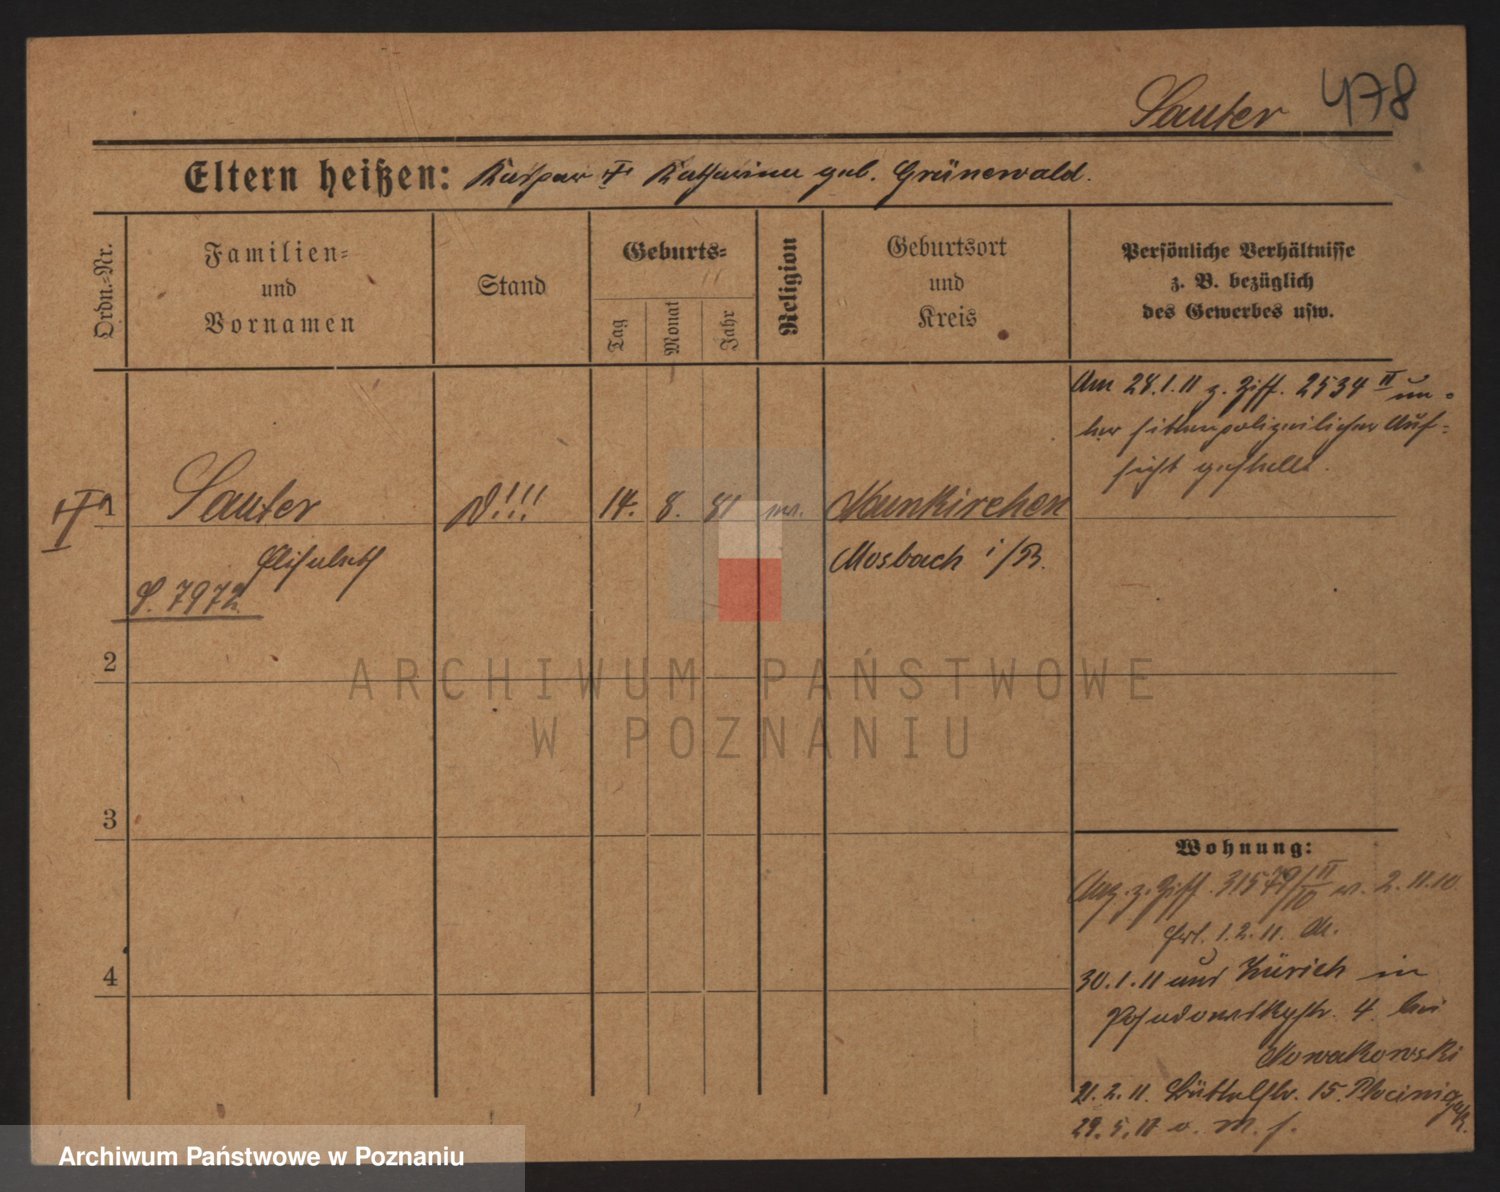 Sauter 478
Eltern heißen: Kaspar u. Katharina geb. Grünewald.
Ordn.-Nr.
Familien- und Vornamen
Stand
Geburts-
Tag
Monat
Jahr
Religion
Geburtsort und Kreis
Persönliche Verhältnisse
z. B. bezüglich
des Gewerbes usw.
Am 28.1.11 z. Ziff. 2534 II un-
ter sittenpolizeilicher Auf-
sicht gestellt.
1
Sauter
!!!
14. 8. 81
Neunkirchen
Elisabeth
Mosbach i/B.
S. 7972
2
3
4
Wohnung:
Ang. z. Ziff. 31579/II/10 v. 2.11.10
1.2.11.
30.1.11 aus Zürich in
Posadowskystr. 4 bei
Nowakowski
21.2.11. Büttelstr. 15.
29.5.
ARCHIWUM PAŃSTWOWE
W POZNANIU
Archiwum Państwowe w Poznaniu